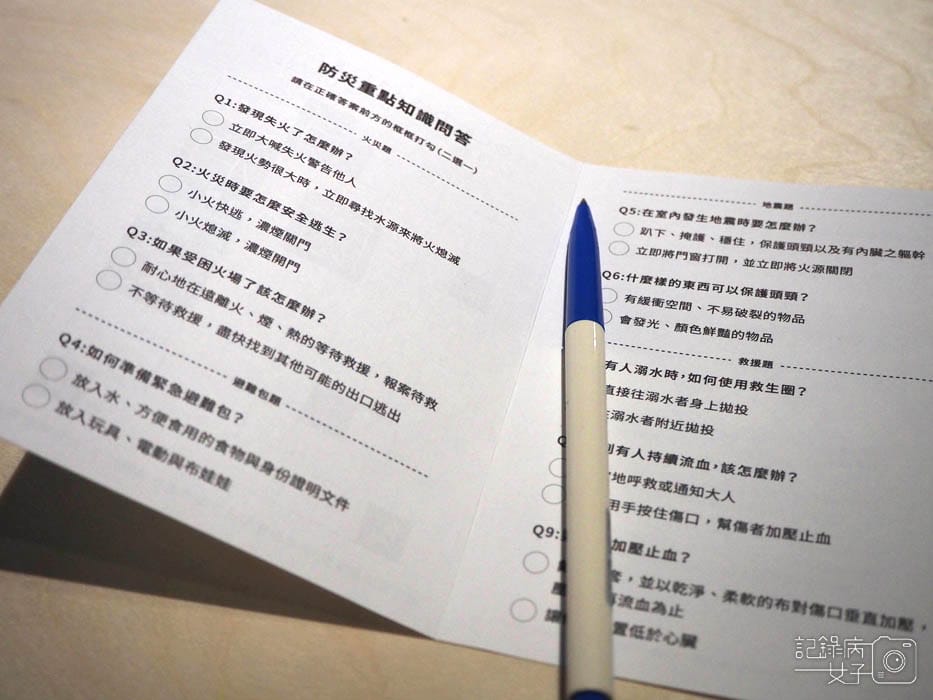 防災重點知識問答
請在正確答案前方的框框打勾(二選一)
火災題
Q1:發現失火了怎麼辦?
立即大喊失火警告他人
發現火勢很大時，立即尋找水源來將火熄滅
Q2:火災時要怎麼安全逃生?
小火快逃，濃煙關門
小火熄滅，濃煙開門
Q3:如果受困火場了該怎麼辦?
耐心地在遠離火、煙、熱的等待救援，報案待救
不等待救援，盡快找到其他可能的出口逃出
避難包題
Q4:如何準備緊急避難包?
放入水、方便食用的食物與身份證明文件
放入玩具、電動與布娃娃
地震題
Q5:在室內發生地震時要怎麼辦?
趴下、掩護、穩住，保護頭頸以及有內臟之軀幹
立即將門窗打開，並立即將火源關閉
Q6:什麼樣的東西可以保護頭頸?
有緩衝空間、不易破裂的物品
會發光、顏色鮮豔的物品
救援題
有人溺水時，如何使用救生圈?
直接往溺水者身上拋投
溺水者附近拋投
有人持續流血，該怎麼辦?
地呼救或通知大人
用手按住傷口，幫傷者加壓止血
Q9:
加壓止血?
，並以乾淨、柔軟的布對傷口垂直加壓，
流血為止
讓
置低於心臟
記錄病
女子